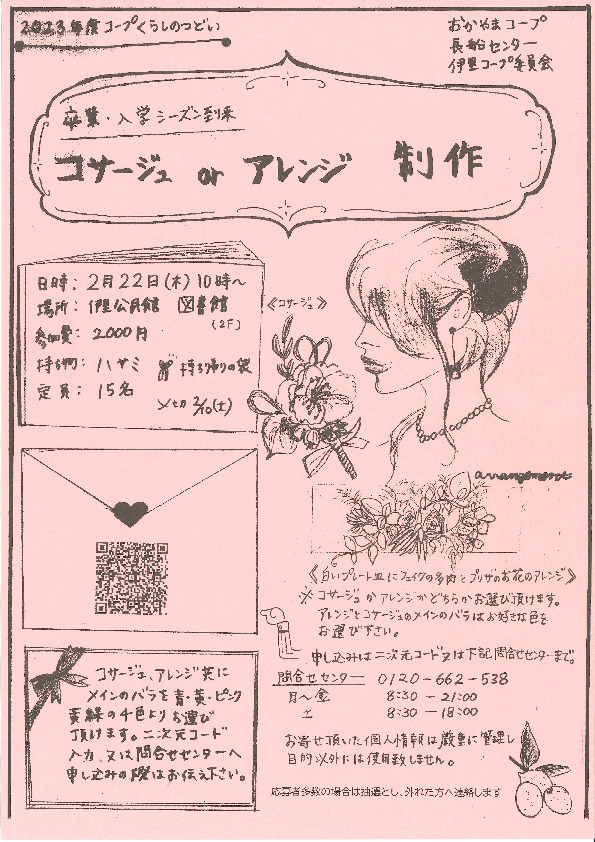 2023年度コープくらしのつどい
おかやまコープ
長船センター
伊里コープ委員会
卒業・入学シーズン到来
コサージュ or アレンジ 制作
日時：2月22日(木)10時〜
場所：伊里公民館 図書館
(2F)
参加費：2000円
持ち物：ハサミ 持ち帰りの袋
定員：15名
〆切 2/10(土)
《コサージュ》
arrangement
《白いプレート皿にフェイクの多肉とプリザのお花のアレンジ》
※コサージュかアレンジかどちらかお選び頂けます。
アレンジとコサージュのメインのバラはお好きな色を
お選び下さい。
申し込みは二次元コード又は下記問合せセンターまで。
問合せセンター 0120-662-538
月〜金 8:30 − 21:00
土 8:30 − 18:00
コサージュ、アレンジ共に
メインのバラを青・黄・ピンク
黄緑の4色よりお選び
頂けます。二次元コード
入力、又は問合せセンターへ
申し込みの際はお伝え下さい。
お寄せ頂いた個人情報は厳重に管理し
目的以外には使用致しません。
応募者多数の場合は抽選とし、外れた方へ連絡します